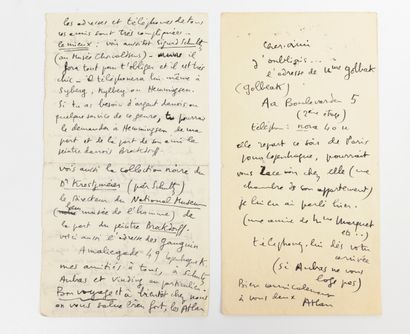 les adresses et téléphones de tous
ces amis sont très compliquées.
le mieux : voir aussitôt Sigurd Schultz
(au Musée Thorvaldsens) il
fera tout pour t'obliger et il est très
chic - il téléphonera lui même à
Syberg, Kylberg ou Hemmingsen.
Si tu as besoin d'argent danois ou
quelque service de ce genre, tu pourras
le demander à Hemmingsen de ma
part et de la part de son ami le
peintre danois
voir aussi la collection noire du
Dr (par Schultz)
le directeur du National Museum
(musée de l'homme) de
la part du peintre
voici aussi l'adresse des gauguin
Amaliegade 49 Copenhague K
mes amitiés à tous, à Schultz
Aubres et vinding en particulier.
Bon voyage et à bientôt chez nous
on vous salue bien fort, les Atlan
cher ami
J'oubliais
l'adresse de Mme golbaek
(golbaek)
Aa Boulevarden 5
(2me étage)
téléphon : nora 60 u
elle repart ce soir de Paris
pour Copenhague, pourrait
vous chez elle (une
chambre de son appartement)
je lui en ai parlé hier.
(une amie de Mme Marquet
etc..)
téléphonez lui dès votre
arrivée
(si Aubres ne vous
loge pas)
Bien amicalement
à vous deux Atlan